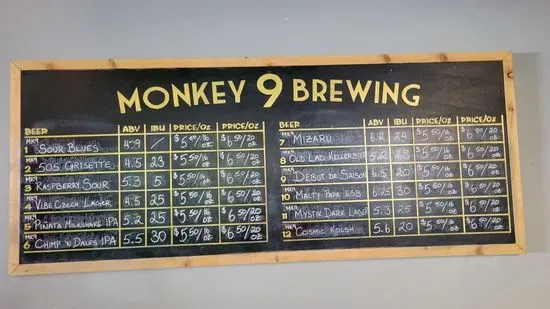 MONKEY 9 BREWING
BEER ABV IBU PRICE/OZ PRICE/OZ
1 MK9 SOUR BLUES 4.9 / $5.50/16 OZ $6.50/20 OZ
2 MK9 505 GRISETTE 4.5 23 $5.50/16 OZ $6.50/20 OZ
3 MK9 RASPBERRY SOUR 5.3 5 $5.50/16 OZ $6.50/20 OZ
4 MK9 VIBE CZECH LAGER 4.5 25 $5.50/16 OZ $6.50/20 OZ
5 MK9 PIÑATA MILKSHAKE IPA 5.2 25 $5.50/16 OZ $6.50/20 OZ
6 MK9 CHIMP 'N DALES IPA 5.5 30 $5.50/16 OZ $6.50/20 OZ
BEER ABV IBU PRICE/OZ PRICE/OZ
7 MK9 MIZARU 6.2 24 $5.50/16 OZ $6.50/20 OZ
8 MK9 OLD LAD KELLERBIER 28 $5.50/16 OZ $6.50/20 OZ
9 MK9 DEBUT DE SAISON 6.5 20 $5.50/16 OZ $6.50/20 OZ
10 MK9 MALTY PAPA ESB 6.25 30 $5.50/16 OZ $6.50/20 OZ
11 MK9 MYSTIK DARK LAGER 5.3 25 $5.50/16 OZ $6.50/20 OZ
12 MK9 COSMIC KOLSH 5.6 20 $5.50/16 OZ $6.50/20 OZ